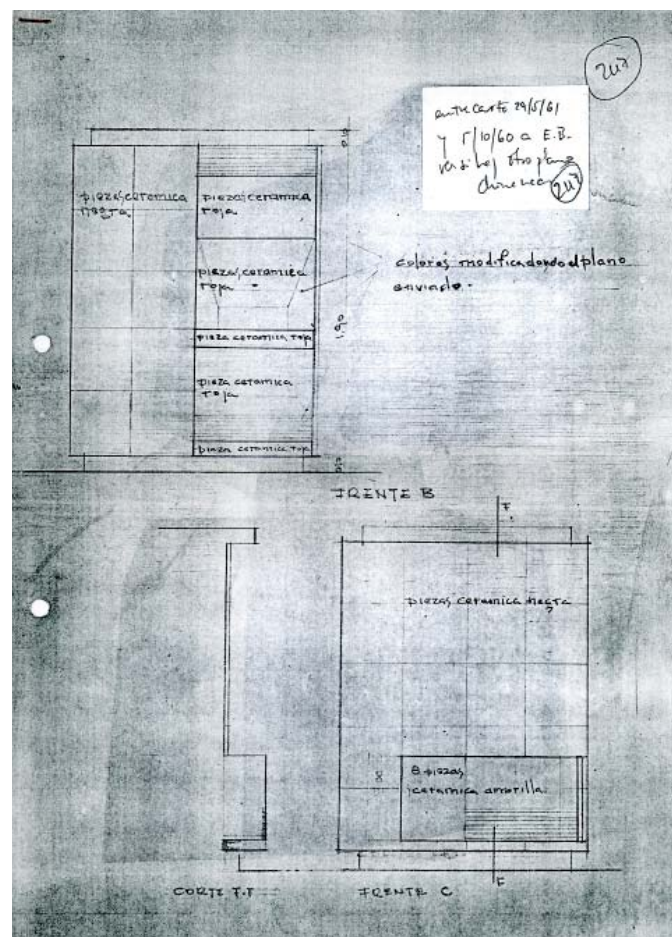 247
entre carta 29/5/61
y 5/10/60 a E.B.
otro plano
chimenea
247
0.10
piezas ceramica
negra
piezas ceramica
roja
piezas ceramica
roja
colores modificados del plano
enviado.
pieza ceramica roja
pieza ceramica
roja
pieza ceramica roja
FRENTE B
F
piezas ceramica negra
8 piezas
ceramica amarilla.
F
CORTE F.F
FRENTE C